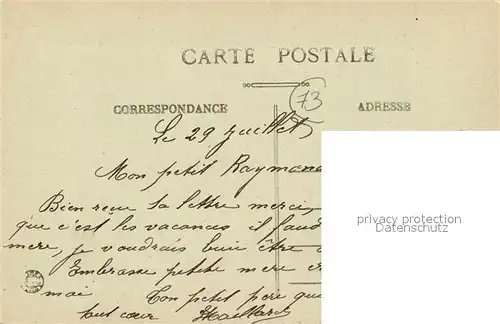 CARTE POSTALE
73
CORRESPONDANCE
ADRESSE
Le 29 Juillet
Mon petit Raymond
Bien reçue ta lettre merci,
que c'est les vacances il faud
mere, je voudrais bien être
Embrasse petite mere
moi Ton petit pere qui
tout cœur
privacy protection
Datenschutz